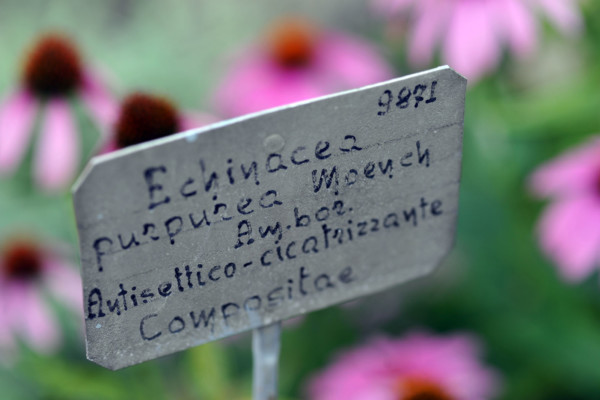 9871
Echinacea
purpurea Moench
Am.bor.
Antisettico-cicatrizzante
Compositae